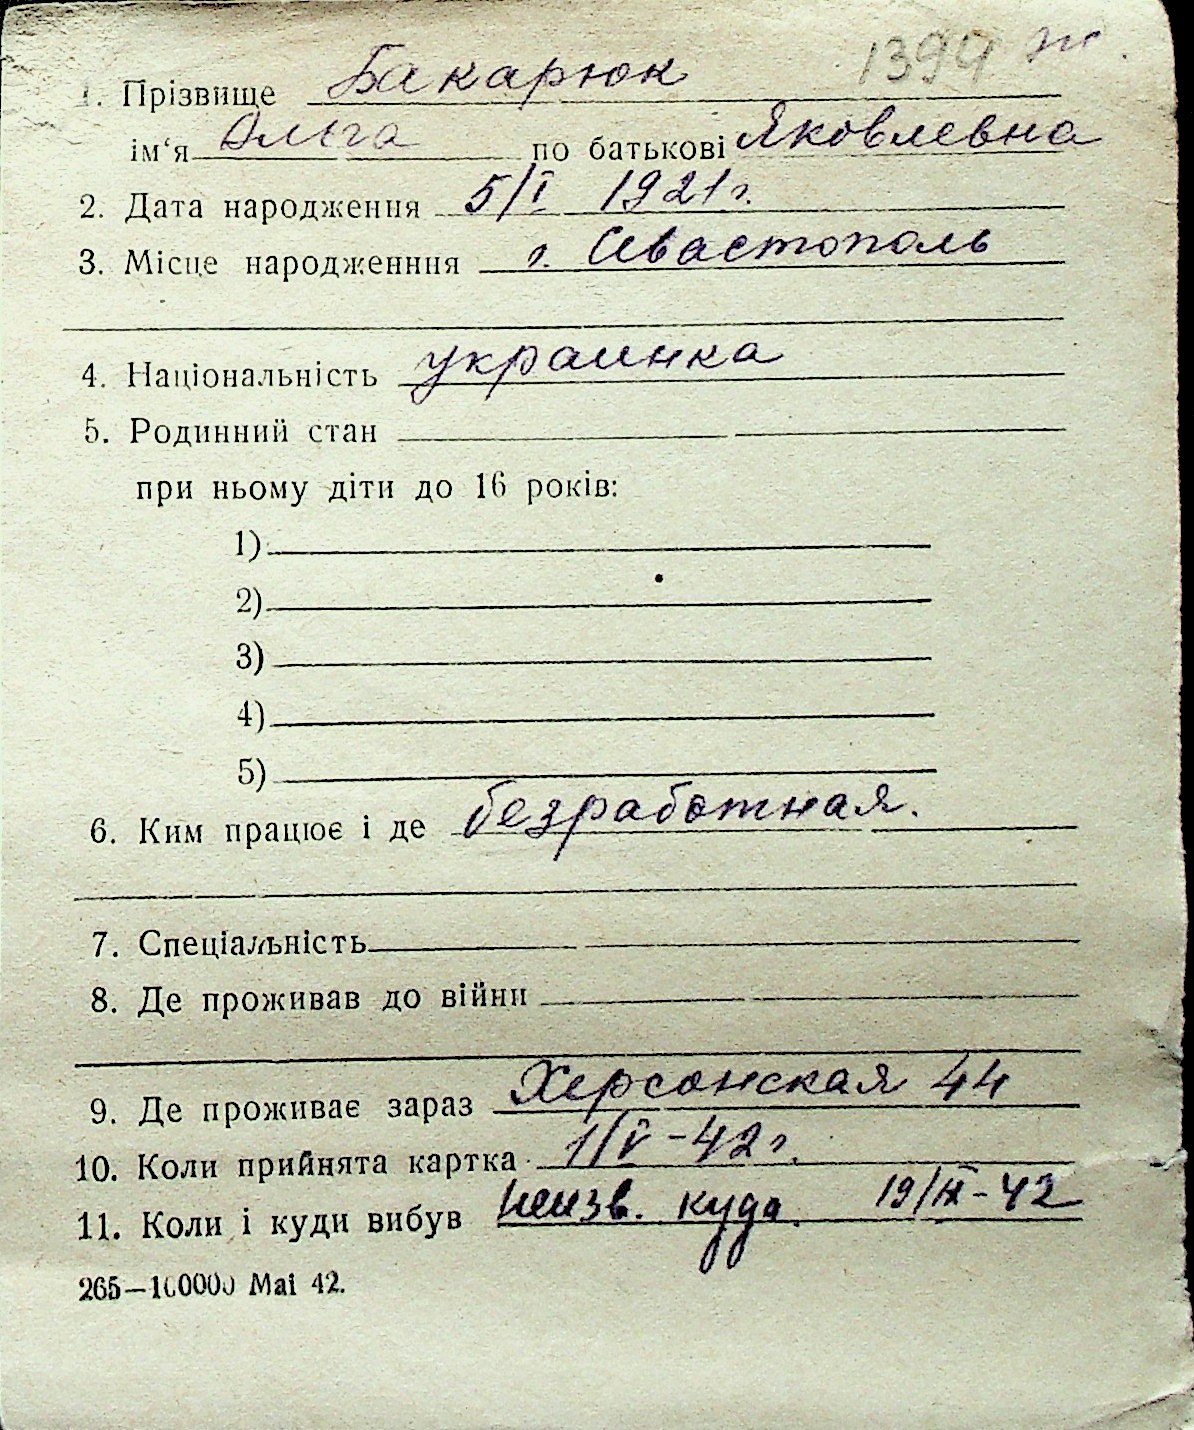 1394 ж.
1. Прізвище Бакарюк
ім‘я Ольга по батькові Яковлевна
2. Дата народження 5/I 1921 г.
3. Місце народженння г. Севастополь
4. Національність украинка
5. Родинний стан
при ньому діти до 16 років:
1)
2)
3)
4)
5)
6. Ким працює і де безработная.
7. Спеціальність
8. Де проживав до війни
9. Де проживає зараз Херсонская 44
10. Коли прийнята картка 1/V-42 г.
11. Коли і куди вибув неизв. куда. 19/IX-42
265—100000 Mai 42.